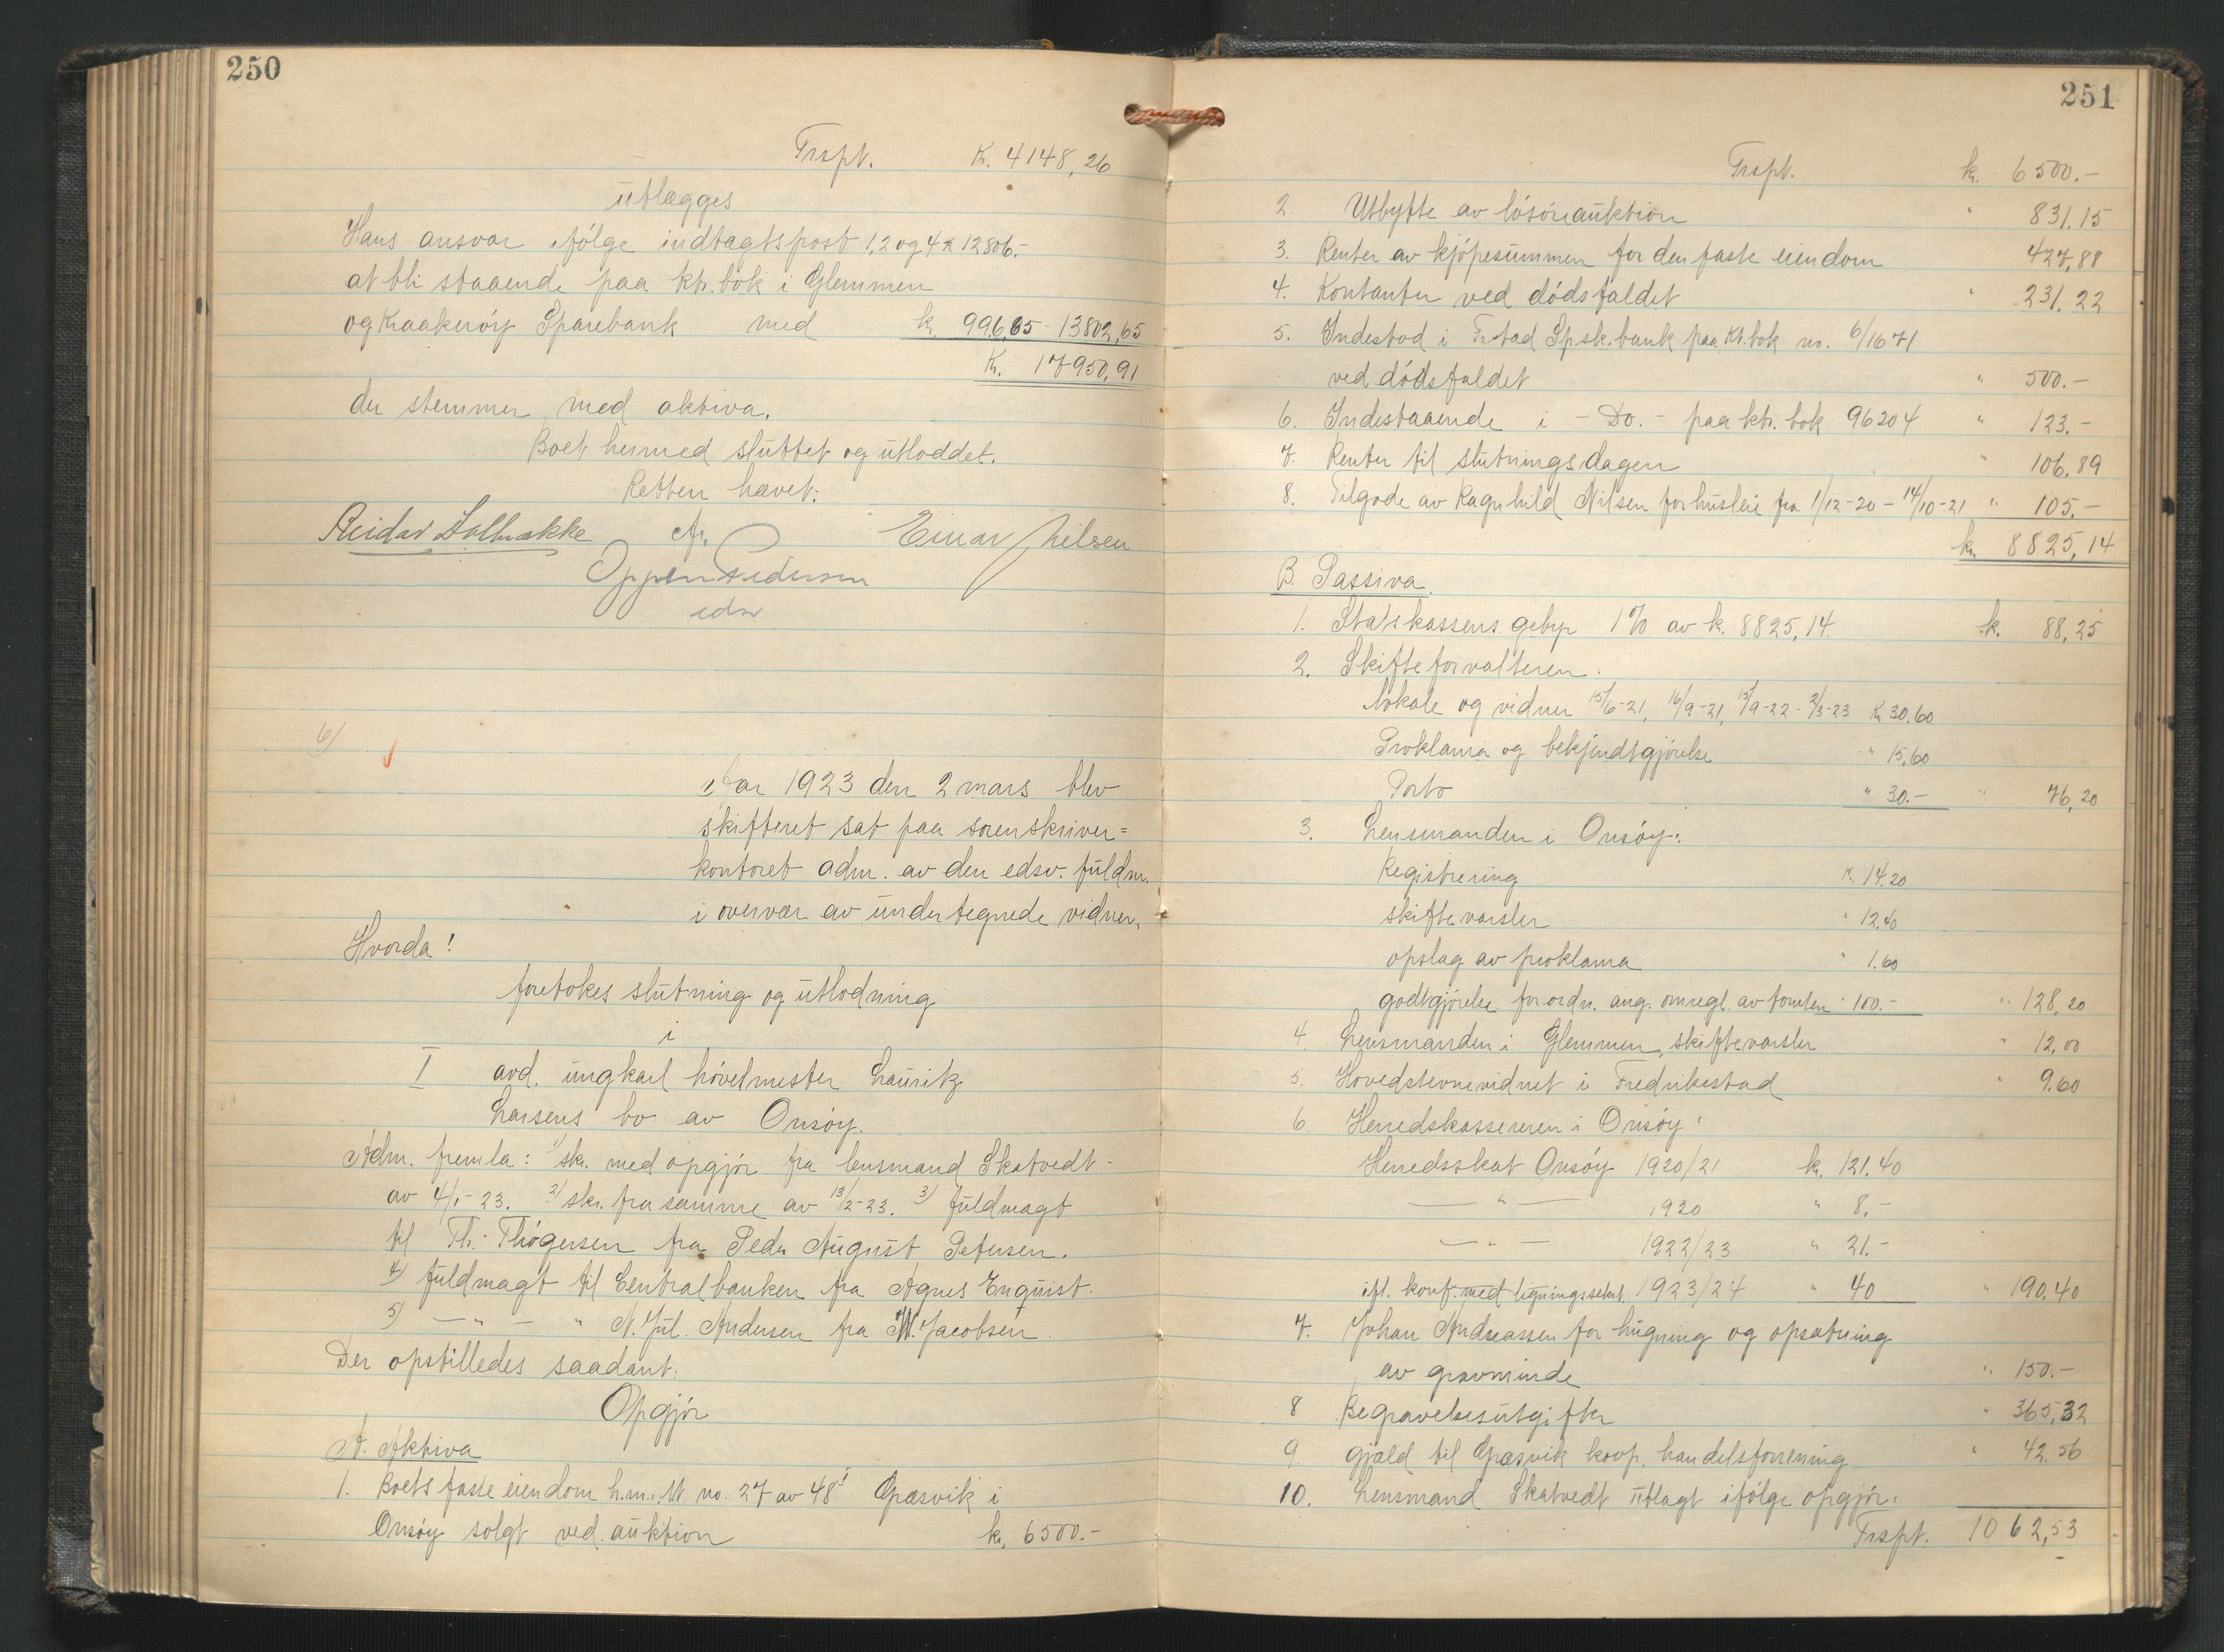 250
Trspt. K. 4148,26
utlægges
Hans ansvar ifølge indtagtspost 1,2 og 4 k 12806.-
at bli staaende paa ktr. bok i Glemmen
og Kraakerøy Sparebank med k. 996,65 - 13802,65
K. 17950,91
der stemmer med aktiva.
Boet hermed sluttet og utloddet.
Retten hævet:
Reidar
Einar Nilsen
Oppen Pedersen
edsv
6)
Aar 1923 den 2 mars blev
skifteret sat paa sorenskriver=
kontoret adm. av den edsv. fuldm.
i overvær av undertegnede vidner.
Hvorda!
foretokes slutning og utlodning
i
I avd. ungkarl høvelmester Lauritz
Larsens bo av Onsøy.
Adm. fremla: 1) skr. med opgjør fra lensmand Skatvedt
av 4/1-23. 2) skr. fra samme av 13/2-23. 3) fuldmagt
til Th. Thøgersen fra Peder August Petersen.
4) fuldmagt til Centralbanken fra Agnes Enquist.
5) — " — " N. Jul. Andersen fra M. Jacobsen.
Der opstilledes saadant:
Opgjør
A. Aktiva
1. Boets faste eiendom h.m. U. no. 27 av 48 Græsvik i
Onsøy solgt ved auktion k. 6500.-
251
Trspt. k. 6500.-
2. Utbytte av løsøreauktion " 831.15
3. Renter av kjøpesummen for den faste eiendom 427,88
4. Kontanter ved dødsfaldet " 231.22
5. Indestod i Fr.stad Sp.sk.bank paa Kt.bok no. 6/1671
ved dødsfaldet " 500.-
6. Indestaaende i - Do. - paa ktr. bok 96204 " 123.-
7. Renter til slutningsdagen " 106.89
8. Tilgode av Ragnhild Nilsen for husleie fra 1/12-20 - 14/10-21 " 105.-
k. 8825,14
B. Passiva.
1. Statskassens gebyr 1% av k. 8825,14. k. 88,25
2. Skifteforvalteren:
lokale og vidner 15/6-21, 16/9-21, 15/9-22 - 2/3-23 K 30.60
Proklama og bekjendtgjørelse " 15,60
Porto " 30.- " 76,20
3. Lensmanden i Onsøy:
Registrering K. 14.20
skiftevarsler " 12.40
opslag av proklama " 1.60
godtgjørelse for ordn. ang. omregl. av tomten " 100.- " 128,20
4. Lensmanden i Glemmen, skiftevarsler " 12,00
5. Hovedstevnevidnet i Fredrikestad " 9.60
6. Herredskassereren i Onsøy:
Herredsskat Onsøy 1920/21 k. 121.40
— " — 1920 " 8,-
— " — 1922/23 " 21.-
ifl. konf. med ligningssekret. 1923/24 " 40 " 190.40
7. Johan Andreassen for hugning og opsætning
av gravminde " 150.-
8 Begravelsesutgifter " 365,32
9. Gjæld til Græsvik koop. handelsforening " 42.56
10. Lensmand Skatvedt utlagt ifølge opgjør:
Trspt. 1062,53